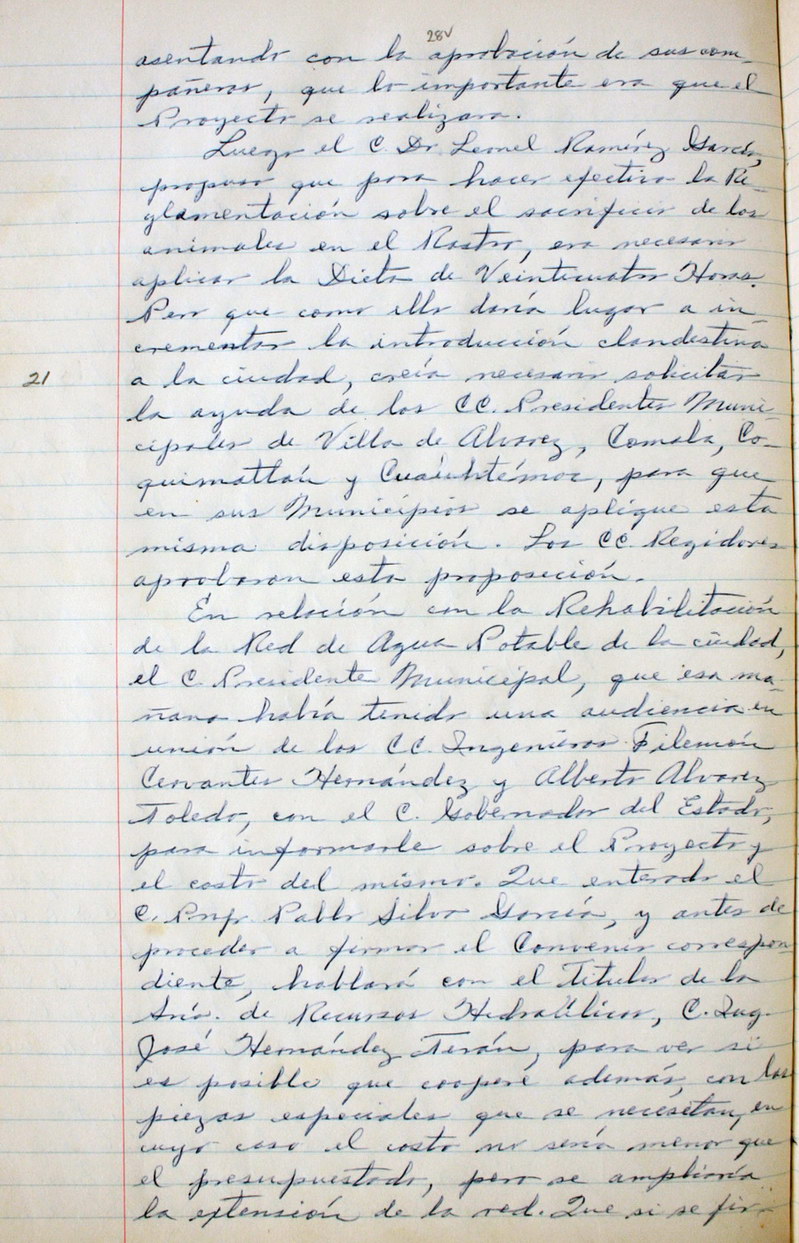 28v
asentando con la aprobación de sus com-
pañeros, que lo importante era que el
Proyecto se realizara.
Luego el C. Dr. Leonel Ramírez García,
propuso que para hacer efectiva la Re-
glamentación sobre el sacrificio de los
animales en el Rastro, era necesario
aplicar la Dieta de Veinticuatro Horas.
Pero que como ello daría lugar a in-
crementar la introducción clandestina
21
a la ciudad, creía necesario solicitar
la ayuda de los CC. Presidentes Muni-
cipales de Villa de Alvarez, Comala, Co-
quimatlán y Cuauhtémoc, para que
en sus Municipios se aplique esta
misma disposición. Los CC. Regidores
aprobaron esta proposición.
En relación con la Rehabilitación
de la Red de Agua Potable de la ciudad,
el C. Presidente Municipal, que esa ma-
ñana había tenido una audiencia en
unión de los CC. Ingenieros Filemón
Cervantes Hernández y Alberto Alvarez
Toledo, con el C. Gobernador del Estado,
para informarle sobre el Proyecto y
el costo del mismo. Que enterado el
C. Profr. Pablo Silva García, y antes de
proceder a firmar el Convenio correspon-
diente, hablará con el Titular de la
Sría. de Recursos Hidraúlicos, C. Ing.
José Hernández Terán, para ver si
es posible que coopere además, con las
piezas especiales que se necesitan, en
cuyo caso el costo no sería menor que
el presupuestado, pero se ampliaría
la extensión de la red. Que si se fir-